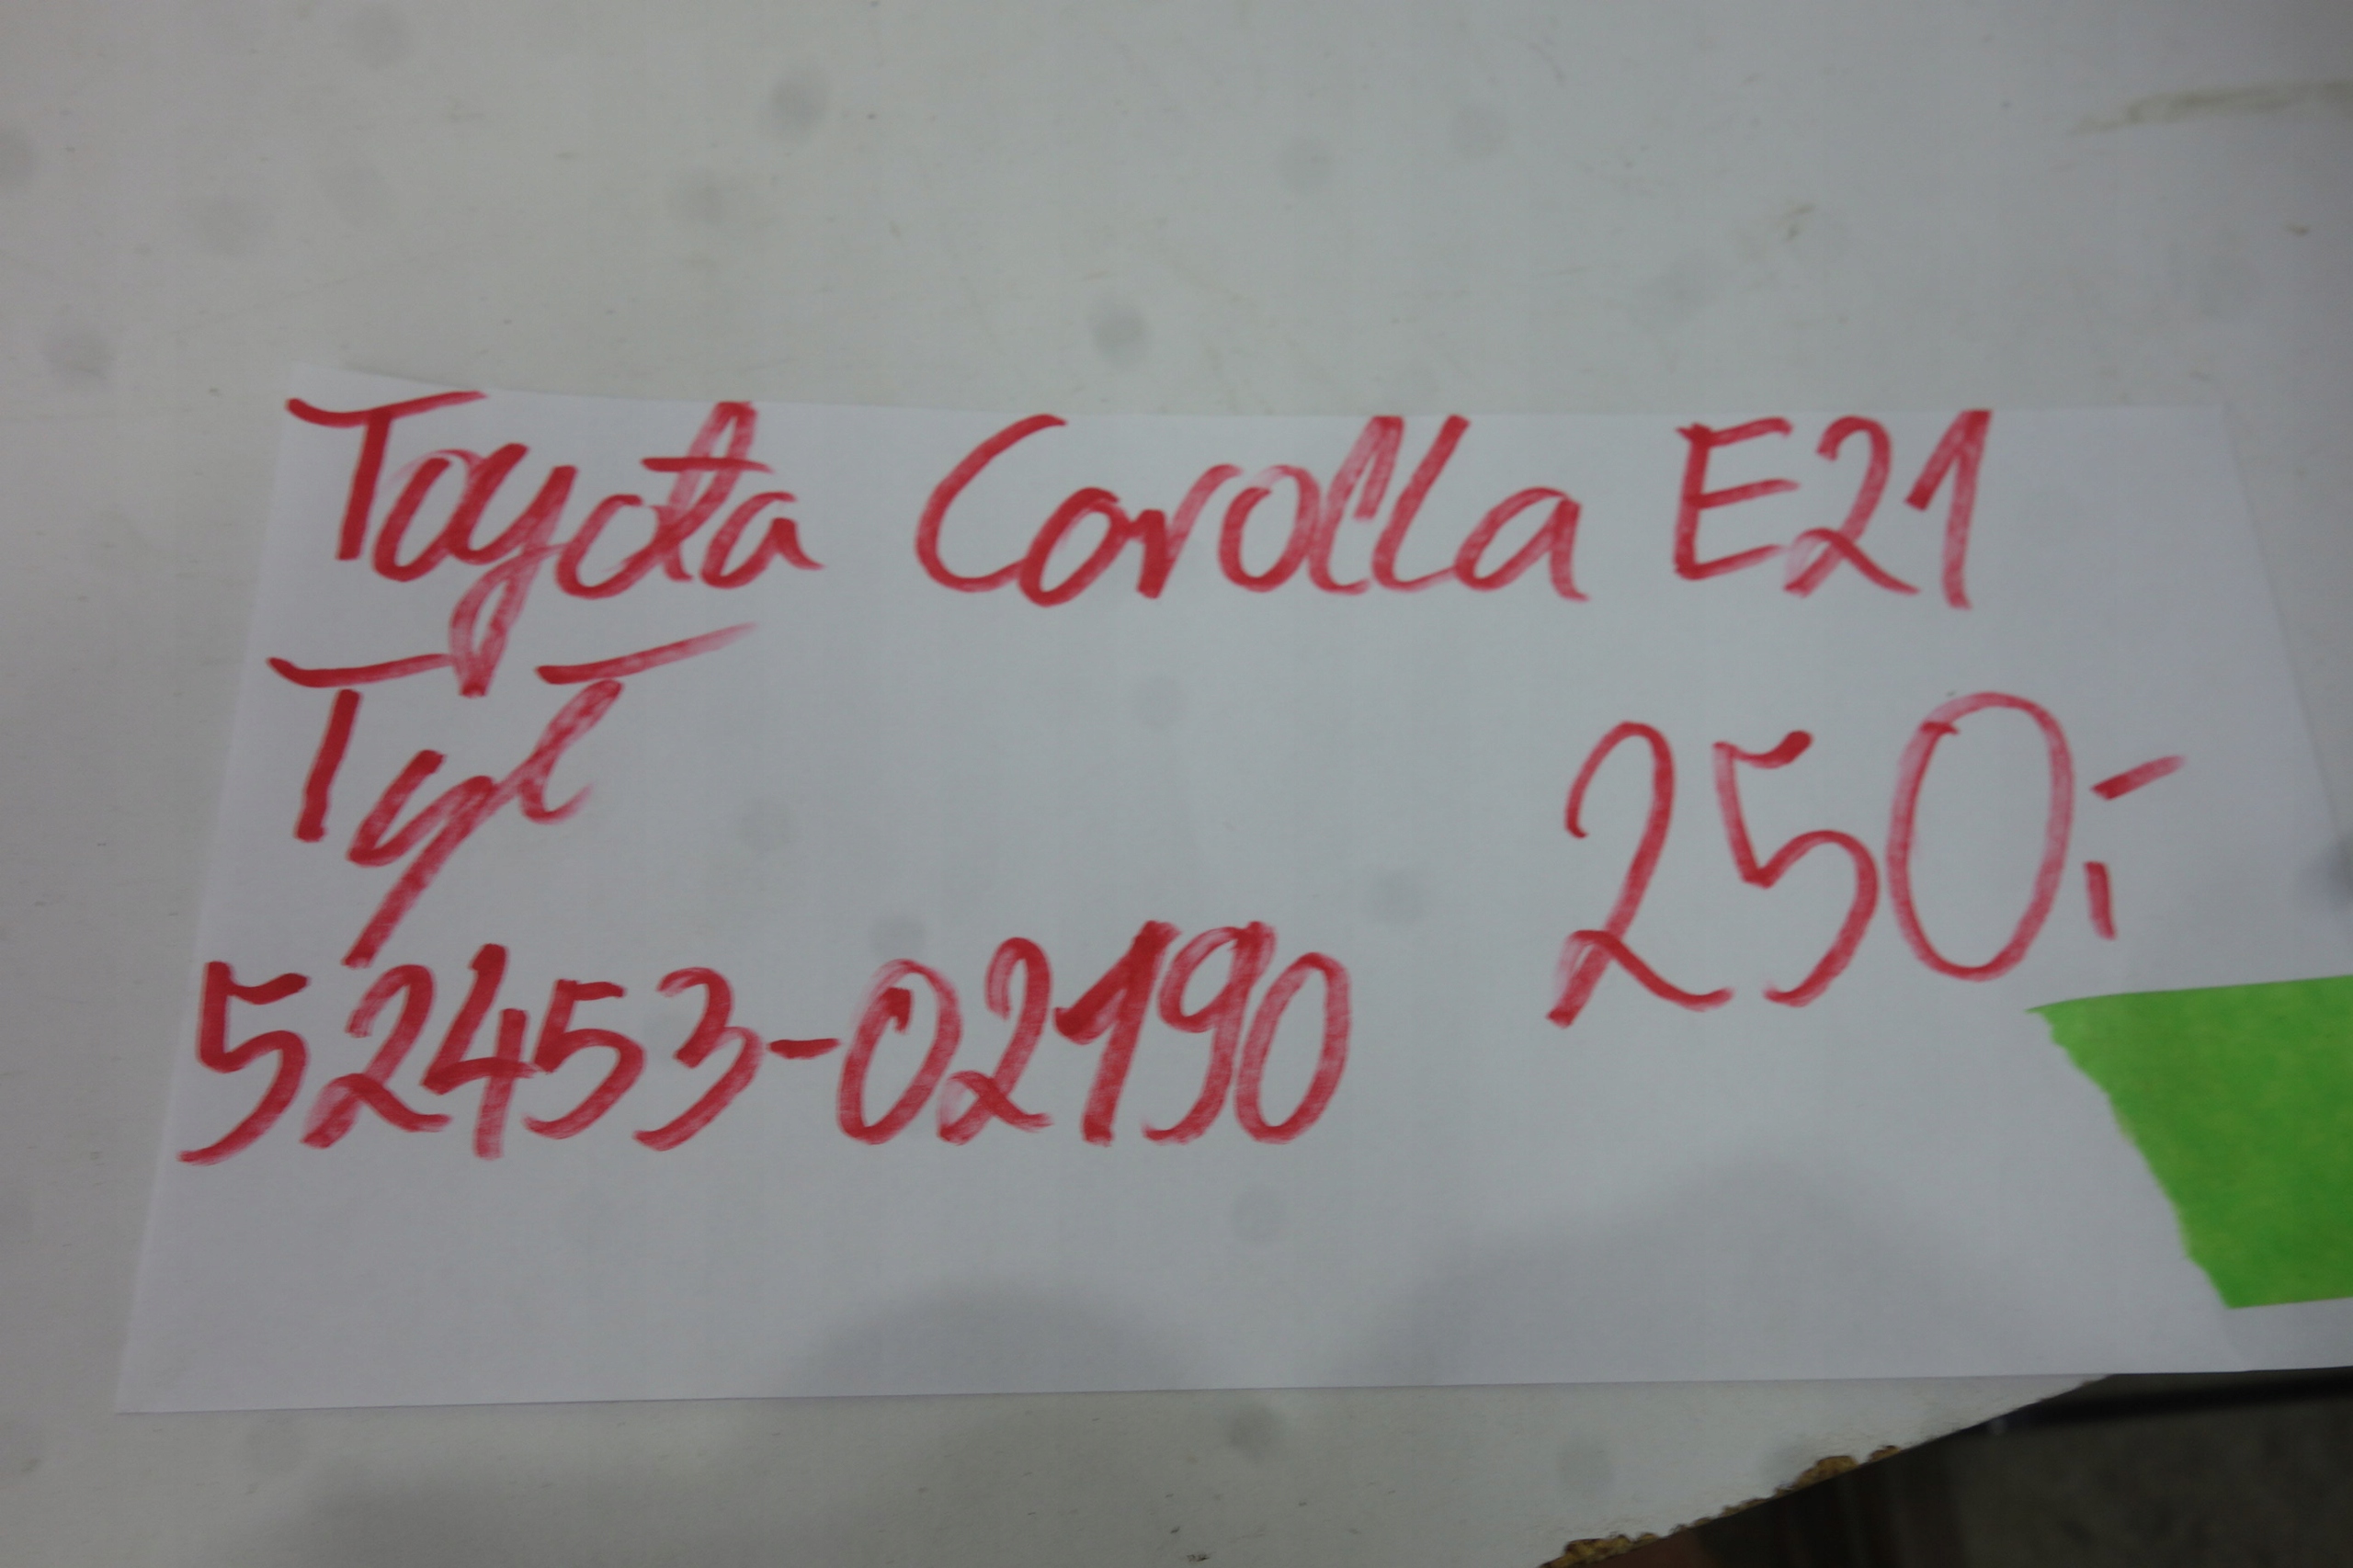 Toyota Corolla E21
Tył
250,-
52453-02190